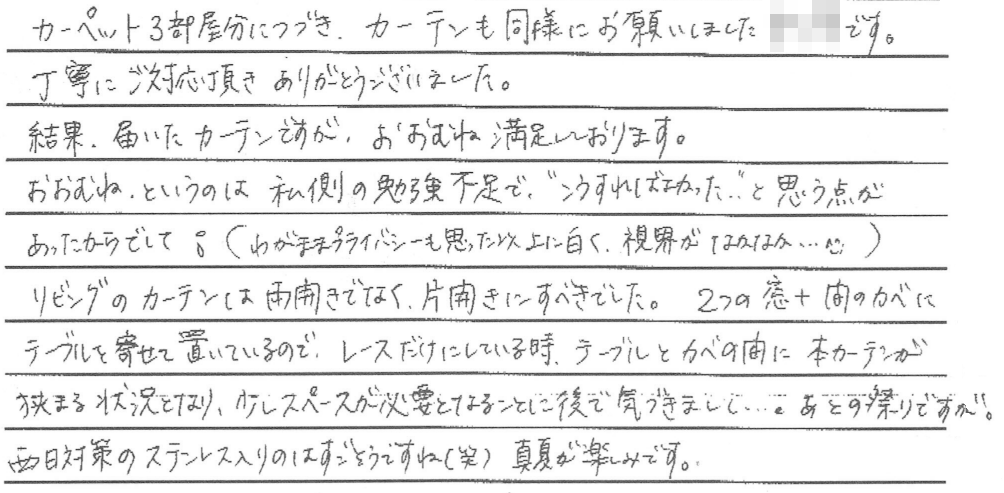 カーペット3部屋分につづき、カーテンも同様にお願いしました です。
丁寧にご対応頂きありがとうございました。
結果、届いたカーテンですが、おおむね満足しております。
おおむね、というのは私側の勉強不足で、"こうすればよかった.."と思う点が
あったからでして。(わがままプライバシーも思った以上に白く、視界がなかなか…)
リビングのカーテンは両開きでなく、片開きにすべきでした。2つの窓+間のカベに
テーブルを寄せて置いているので、レースだけにしている時、テーブルとカベの間に本カーテンが
挟まる状況となり、少しスペースが必要となることに後で気づきまして…。あとの祭りですが。
西日対策のステンレス入りのはすごそうですね(笑)真夏が楽しみです。